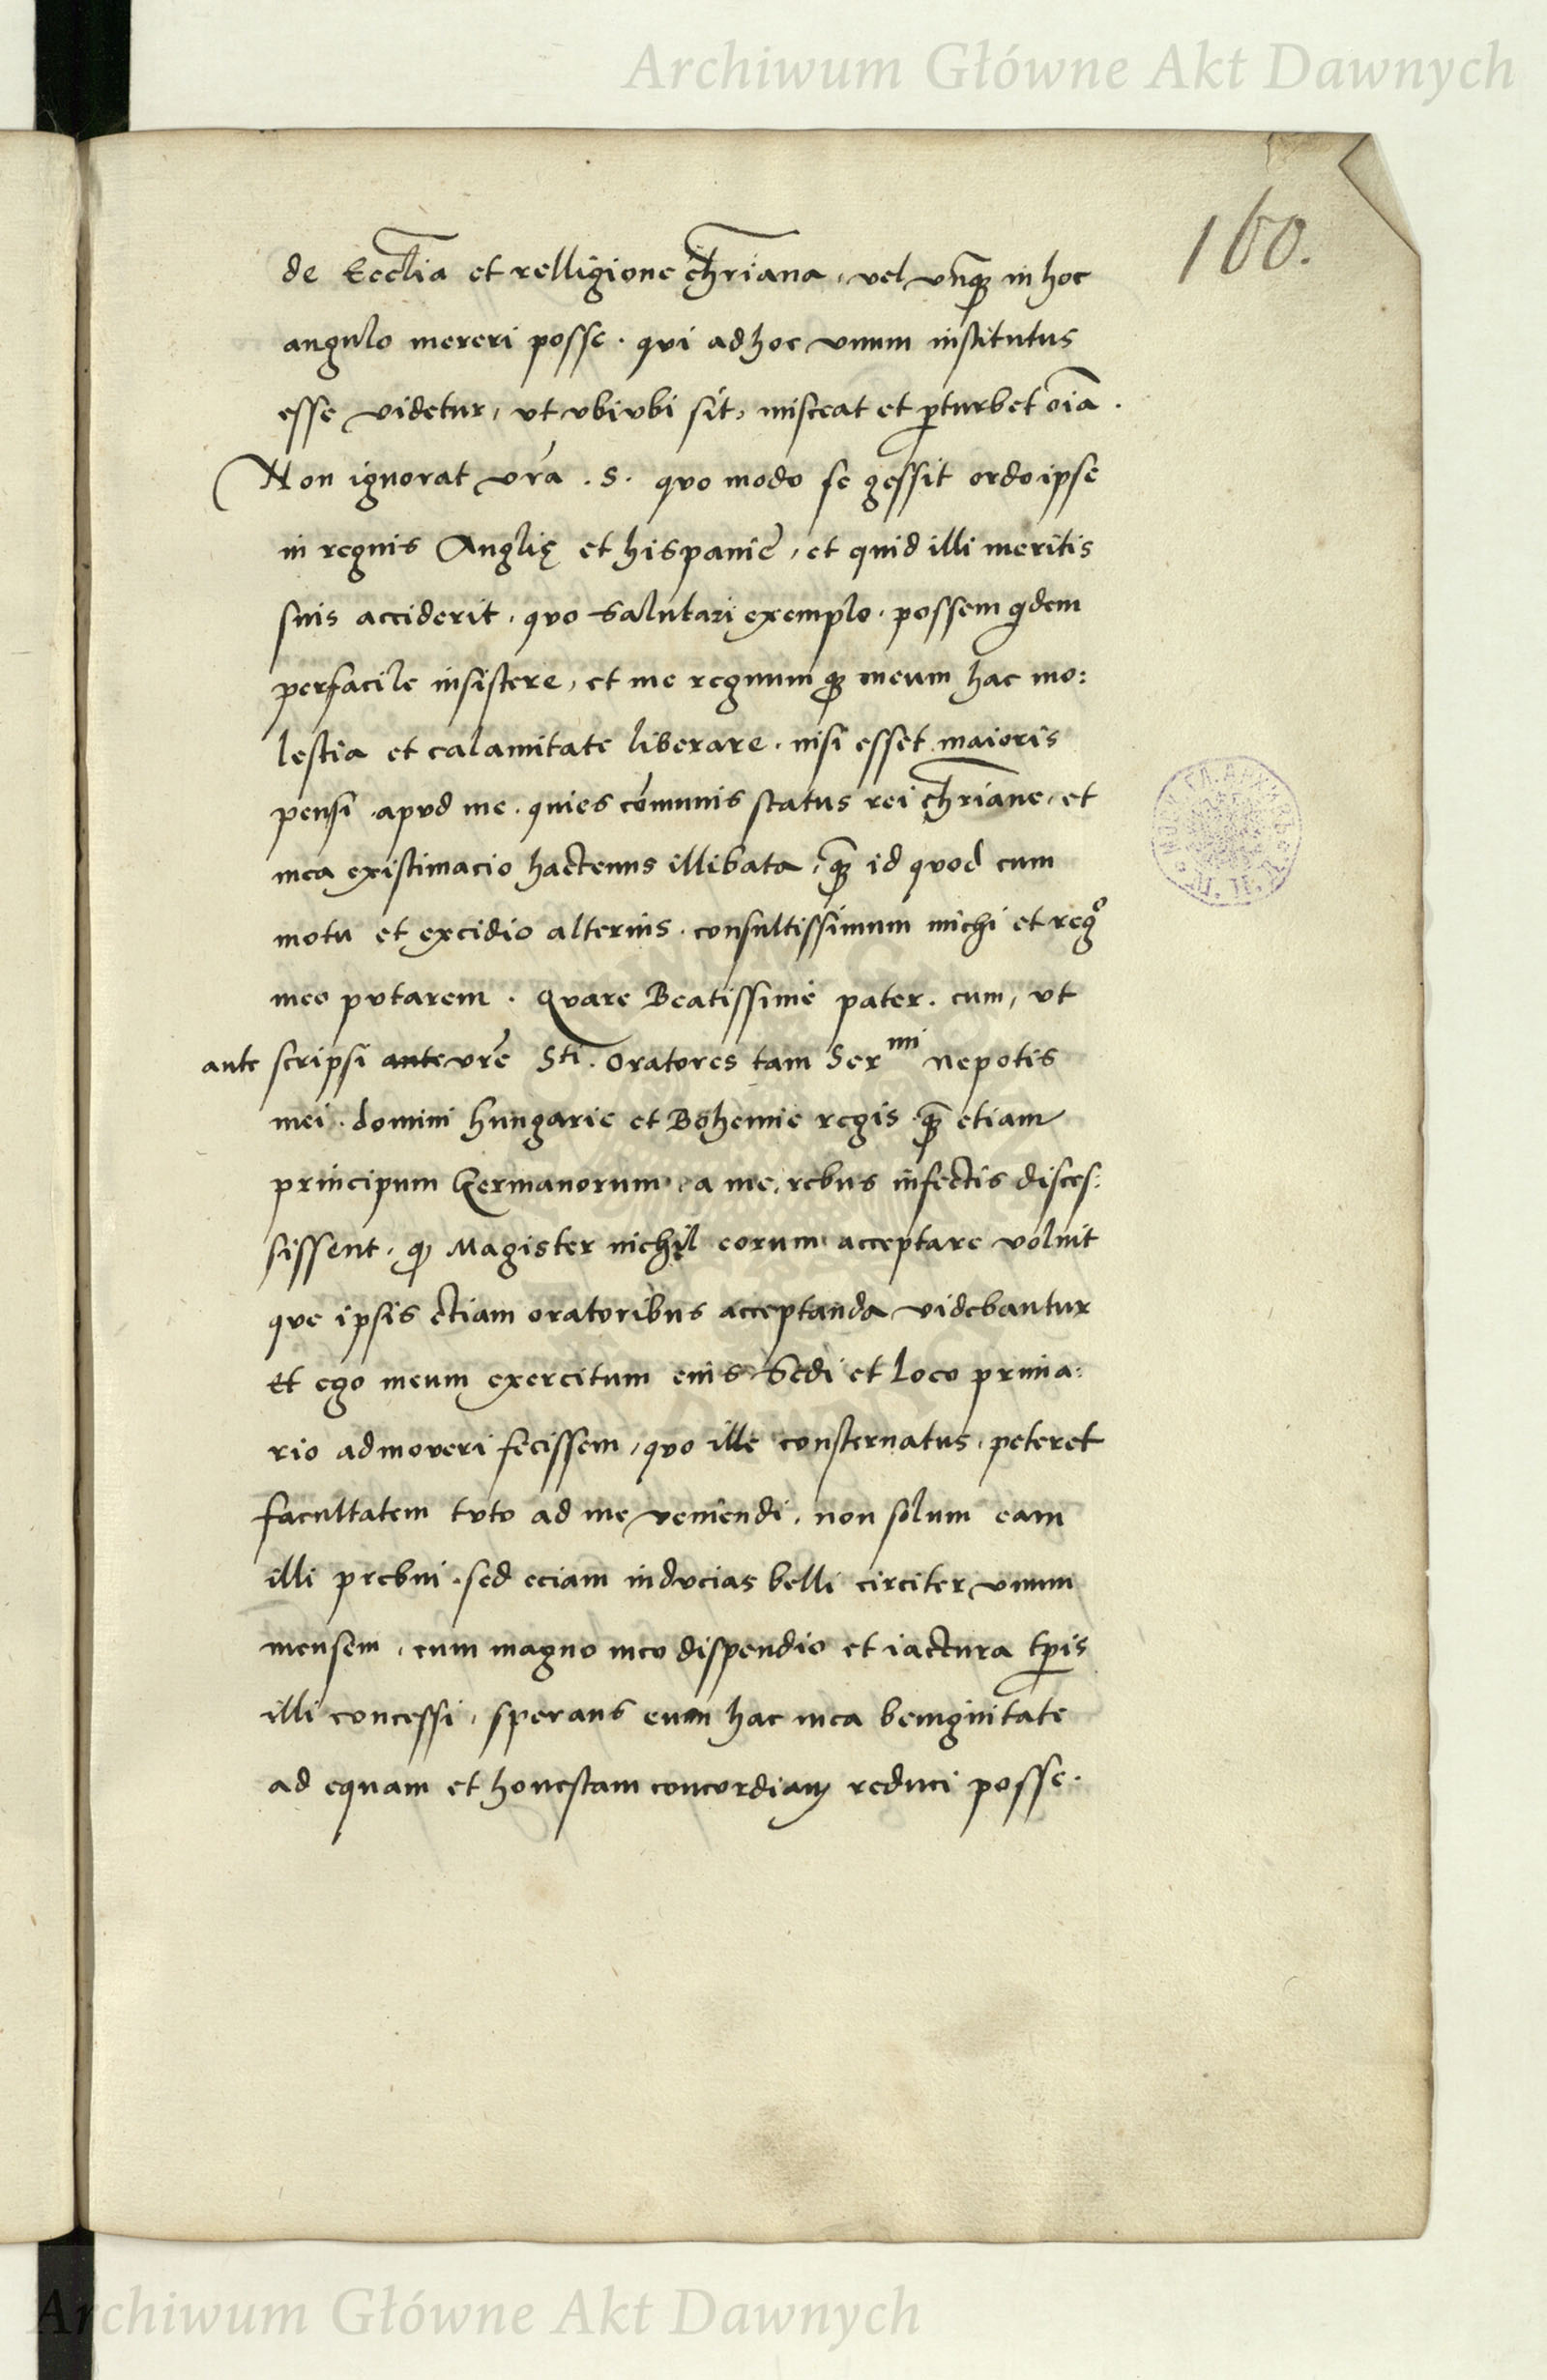 Archiwum Główne Akt Dawnych
160.
de Eccl̅ia et relligione chr̅iana, vel vnq̅ꝫ in hoc
angulo mereri posse. qui ad hoc vnum institutus
esse videtur, vt vbivbi sit, misceat et ꝑturbet o̅ia.
Non ignorat vr̅a .S. quo modo se gessit ordo ipse
in regnis Anglię et hispanię, et quid illi meritis
suis acciderit, quo salutari exemplo, possem qdem
perfacile insistere, et me regnumqꝫ meum hac mo:
lestia et calamitate liberare. nisi esset maioris
pensi apud me. quies co̅munis status rei chr̅iane, et
mea existimacio hactenus illibata, q̅ꝫ id quod cum
motu et excidio alterius. consultissimum michi et regº
meo putarem. Quare Beatissime pater. cum, vt
ante scripsi ante vr̅e Sti. oratores tam Sermi nepotis
mei. domini hungarie et Bohemie regis q̅ꝫ etiam
principum Germanorum, a me, rebus infectis disces:
sissent, qꝫ Magister nichil eorum acceptare voluit
que ipsis etiam oratoribus acceptanda videbantur
Et ego meum exercitum eius Sedi et loco prima:
rio admoveri fecissem, quo ille consternatus, peteret
facultatem tuto ad me veniendi, non solum eam
illi prebui. sed eciam inducias belli circiter vnum
mensem, cum magno meo dispendio et iactura tp̅is
illi concessi, sperans eum hac mea benignitate
ad equam et honestam concordiam reduci posse.
Archiwum Główne Akt Dawnych